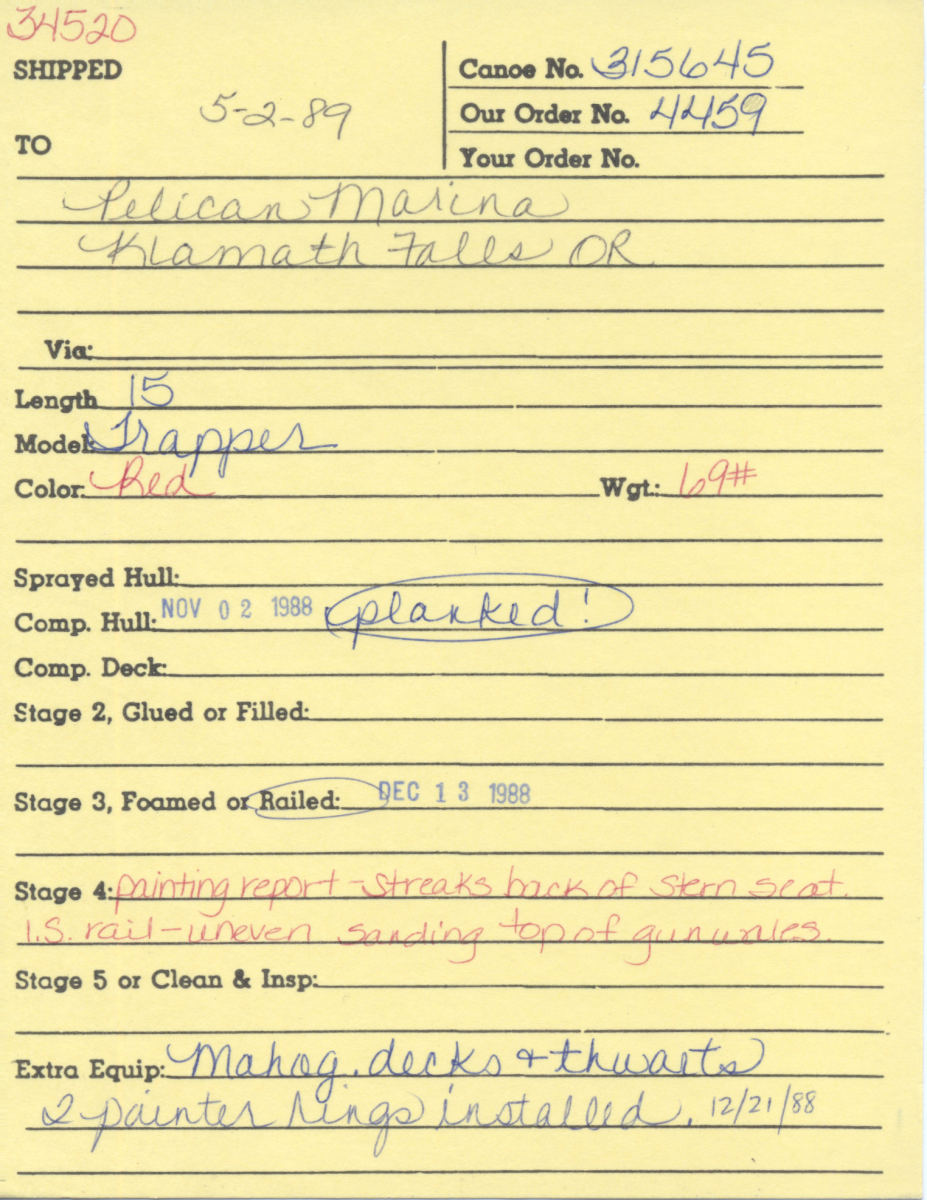 34520
SHIPPED
5-2-89
TO
Canoe No. 315645
Our Order No. 4459
Your Order No.
Pelican Marina
Klamath Falls OR
Via:
Length 15
Model: Trapper
Color: Red Wgt.: 69#
Sprayed Hull:
Comp. Hull: NOV 02 1988 planked!
Comp. Deck:
Stage 2, Glued or Filled:
Stage 3, Foamed or Railed: DEC 13 1988
Stage 4: painting report - streaks back of stern seat.
I.S. rail - uneven sanding top of gunwales.
Stage 5 or Clean & Insp:
Extra Equip: Mahog. decks + thwarts
2 painter rings installed. 12/21/88